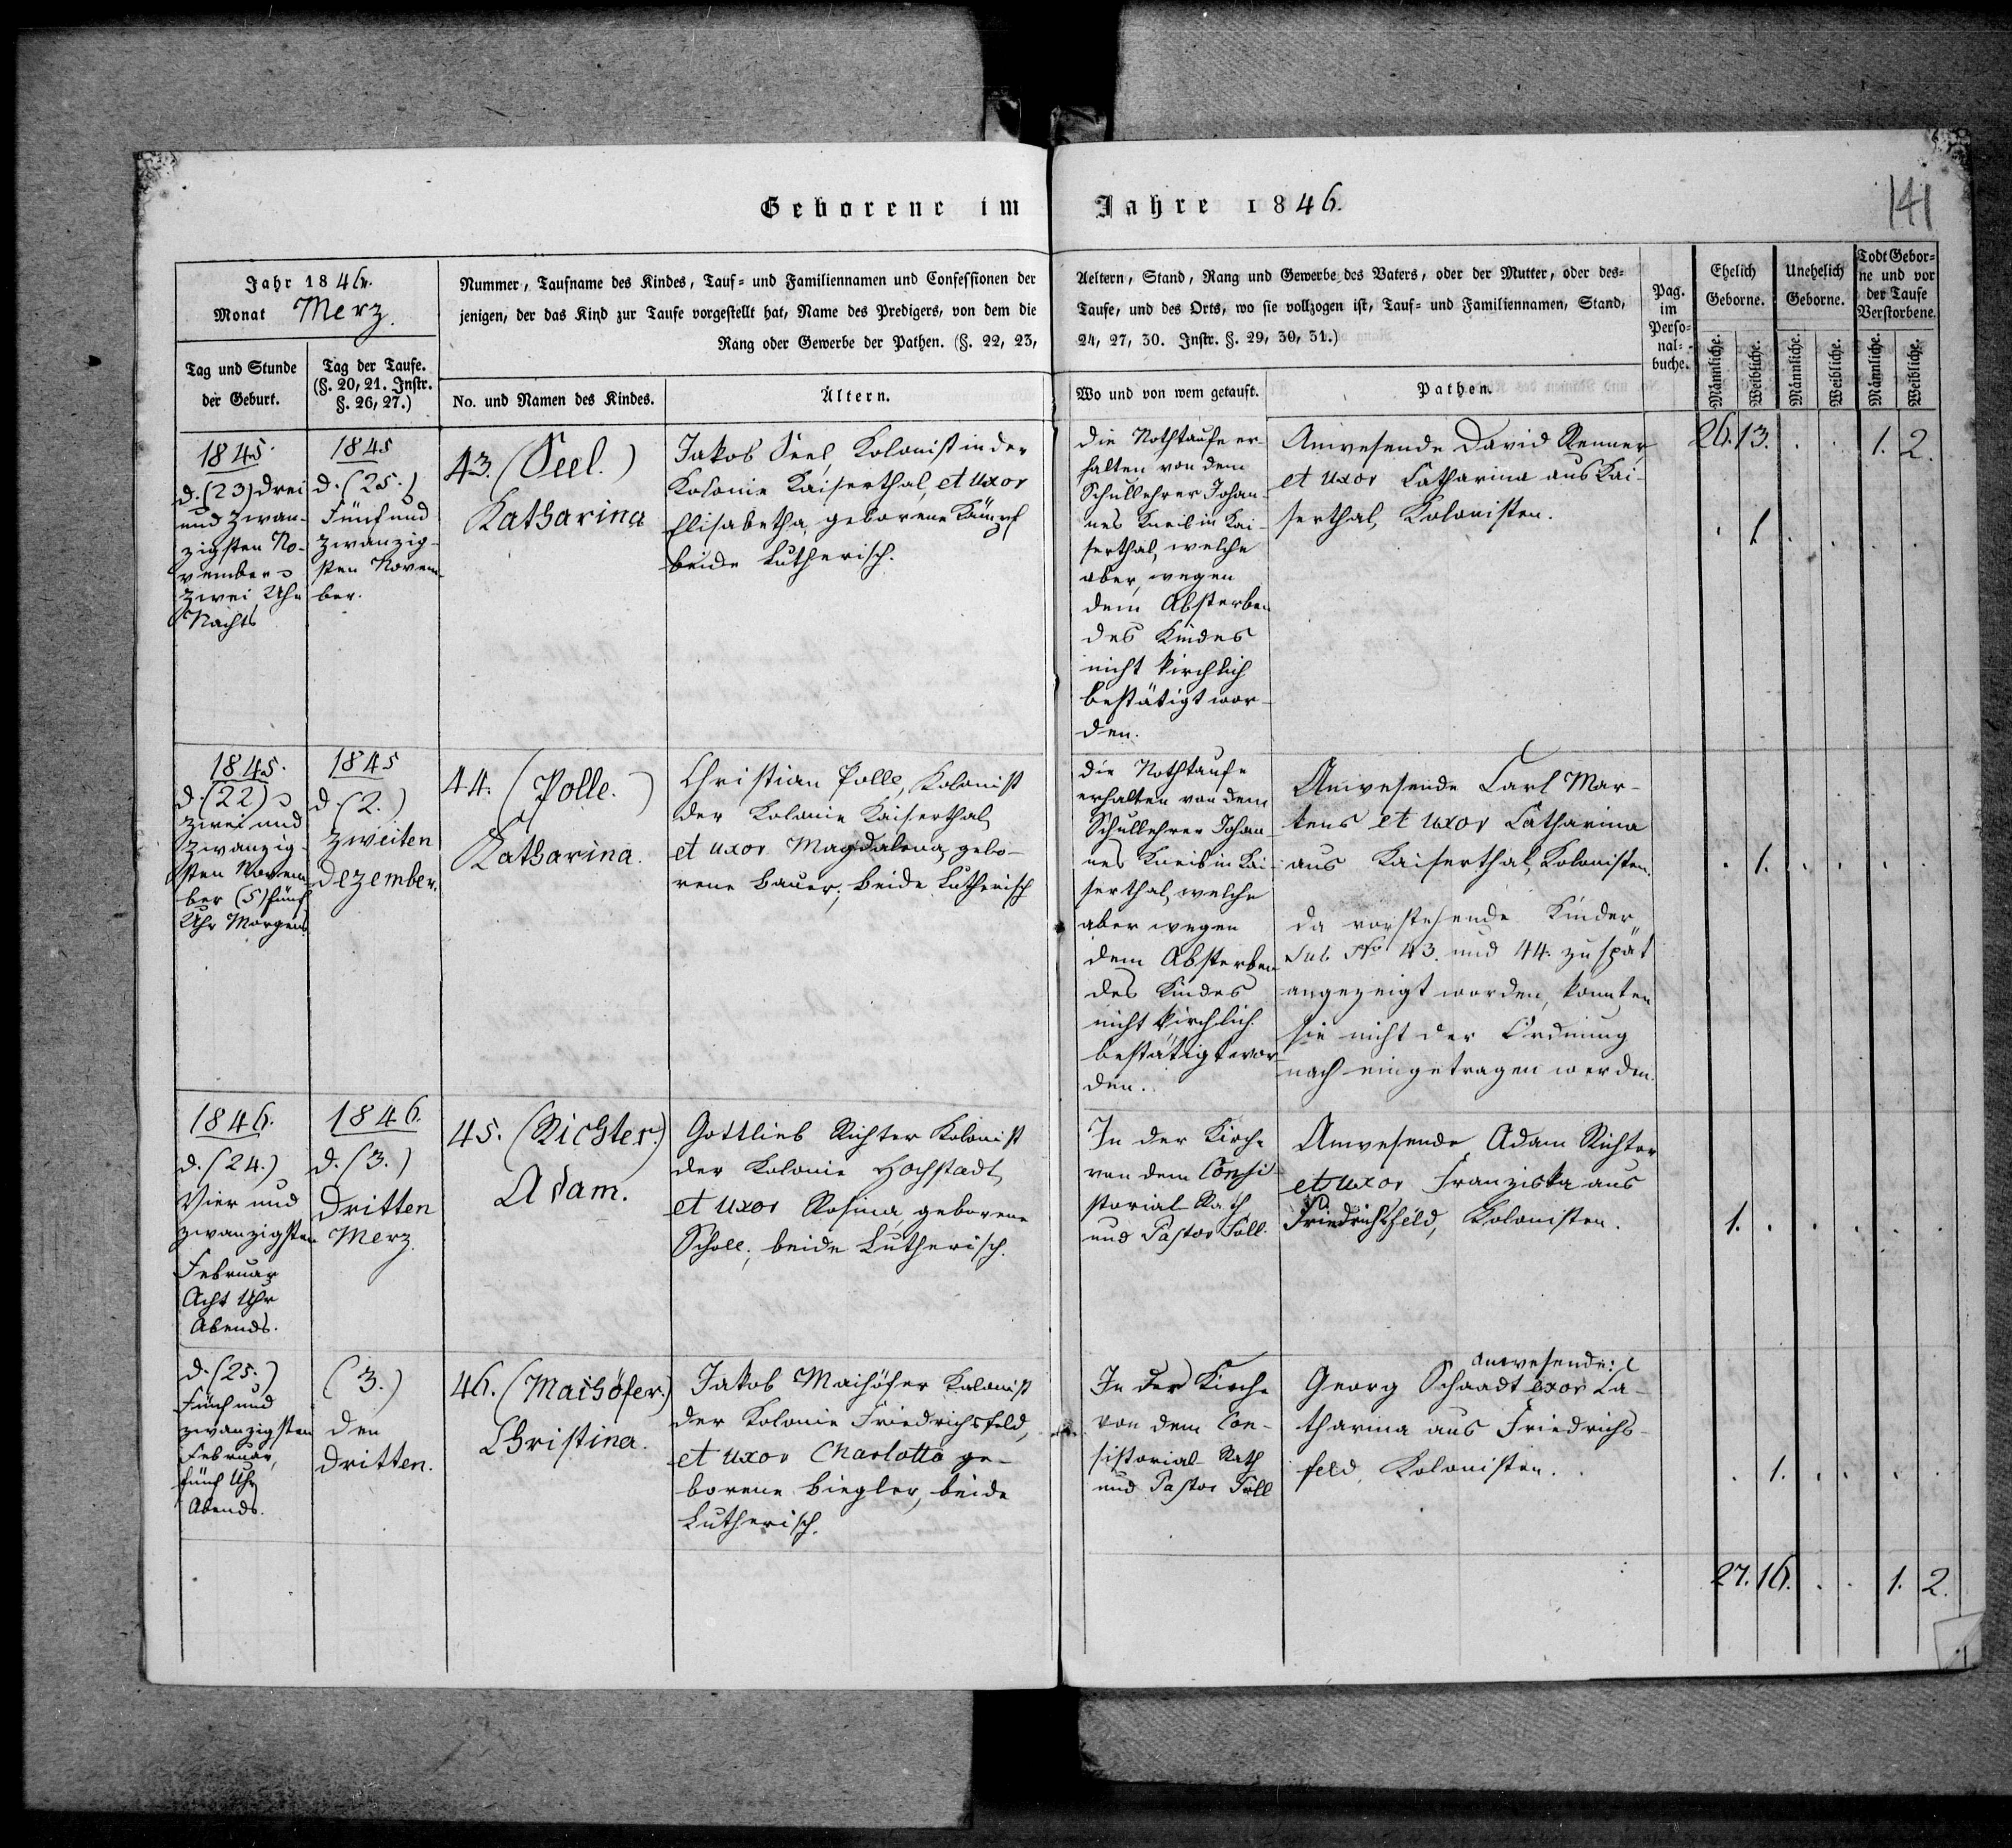 Geborene im Jahre 1846.
141
Jahr 1846.
Monat Merz.
Tag und Stunde
der Geburt.
Tag der Taufe.
(§. 20, 21. Instr.
§. 26, 27.)
Nummer, Taufname des Kindes, Tauf- und Familiennamen und Confessionen der
jenigen, der das Kind zur Taufe vorgestellt hat, Name des Predigers, von dem die
Rang oder Gewerbe der Pathen. (§. 22, 23,
No. und Namen des Kindes.
Ältern.
Aeltern, Stand, Rang und Gewerbe des Vaters, oder der Mutter, oder des-
Taufe, und des Orts, wo sie vollzogen ist, Tauf- und Familiennamen, Stand,
24, 27, 30. Instr. §. 29, 30, 31.)
Wo und von wem getauft.
Pathen.
Pag.
im
Perso-
nal-
buche.
Ehelich
Geborne.
Unehelich
Geborne.
Todt Gebor-
ne und vor
der Taufe
Verstorbene.
Männliche.
Weibliche.
Männliche.
Weibliche.
Männliche.
Weibliche.
1845.
d. (23) drei
und zwan-
zigsten No-
vember
zwei Uhr
Nachts
1845
d. (25.)
Fünf und
zwanzig-
sten Novem-
ber.
43. (Seel.)
Katharina
Jakob Seel, Kolonist in der
Kolonie Kaiserthal, et uxor
Elisabetha, geborene Kämpf
beide Lutherisch.
die Nothtaufe er-
halten von dem
Schullehrer Johan-
nes Kneib in Kai-
serthal, welche
aber, wegen
dem Absterben
des Kindes
nicht kirchlich
bestätigt wor-
den.
Anwesende David Renner,
et uxor Catharina aus Kai-
serthal, Kolonisten.
26. 13. . . 1. 2.
. 1. . . . .
1845.
d. (22)
zwei und
zwanzig-
sten Novem-
ber (5) fünf
Uhr Morgens.
1845
d. (2.)
zweiten
Dezember.
44. (Polle.)
Katharina.
Christian Polle, Kolonist
der Kolonie Kaiserthal,
et uxor Magdalena, gebo-
rene Bauer, beide Lutherisch
die Nothtaufe
erhalten von dem
Schullehrer Johan-
nes Kneib in Kai-
serthal, welche
aber wegen
dem Absterben
des Kindes
nicht kirchlich
bestätigt wor-
den.
Anwesende Carl Mar-
tens et uxor Catharina
aus Kaiserthal, Kolonisten.
da vorstehende Kinder
sub No 43. und 44. zu spät
angezeigt worden, konnten
sie nicht der Ordnung
nach eingetragen werden.
. 1. . . . .
1846.
d. (24.)
Vier und
zwanzigsten
Februar
Acht Uhr
Abends.
1846.
d. (3.)
Dritten
Merz.
45. (Richter.)
Adam.
Gottlieb Richter Kolonist
der Kolonie Hochstadt,
et uxor Rosina, geborene
Scholl, beide Lutherisch.
In der Kirche
von dem Consi-
storial-Rath
und Pastor Föll.
Anwesende Adam Richter
et uxor Franziska aus
Friedrichsfeld, Kolonisten.
1. . . . . .
d. (25.)
Fünf und
zwanzigsten
Februar,
fünf Uhr
Abends.
(3.)
den
dritten.
46. (Maihöfer.)
Christina.
Jakob Maihöfer Kolonist
der Kolonie Friedrichsfeld,
et uxor Charlotta ge-
borene Biegler, beide
Lutherisch.
In der Kirche
von dem Con-
sistorial-Rath
und Pastor Föll
anwesende:
Georg Schaadt uxor Ca-
tharina aus Friedrichs-
feld, Kolonisten.
. 1. . . . .
27. 16. . . 1. 2.